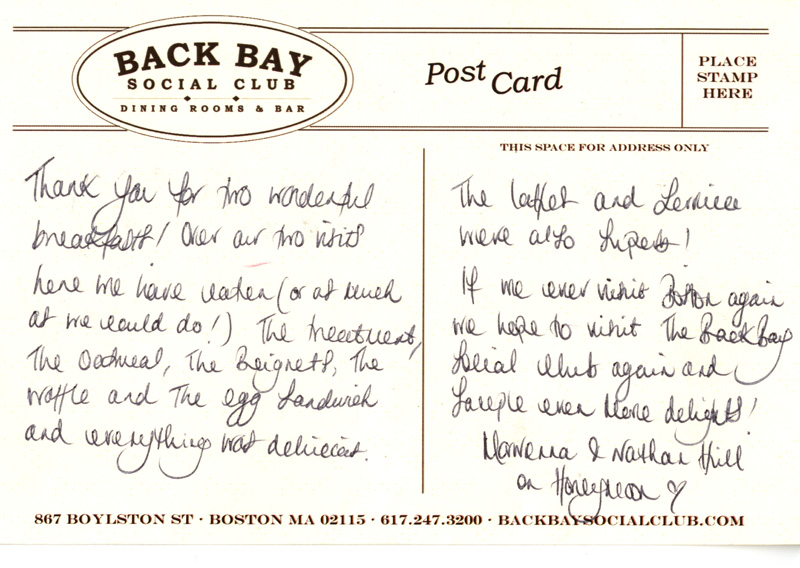 BACK BAY
SOCIAL CLUB
DINING ROOMS & BAR
Post Card
PLACE
STAMP
HERE
THIS SPACE FOR ADDRESS ONLY
Thank you for two wonderful
breakfasts! Over our two visits
here we have eaten (or as much
as we could do!) The treatment,
The Oatmeal, The Beignets, The
waffle and The egg Sandwich
and everything was delicious.
The coffee and Service
were also Superb!
If we ever visit Boston again
we hope to visit The Back Bay
Social Club again and
Sample even More delights!
Morwenna & Nathan Hill
on Honeymoon ♡
867 BOYLSTON ST · BOSTON MA 02115 · 617.247.3200 · BACKBAYSOCIALCLUB.COM